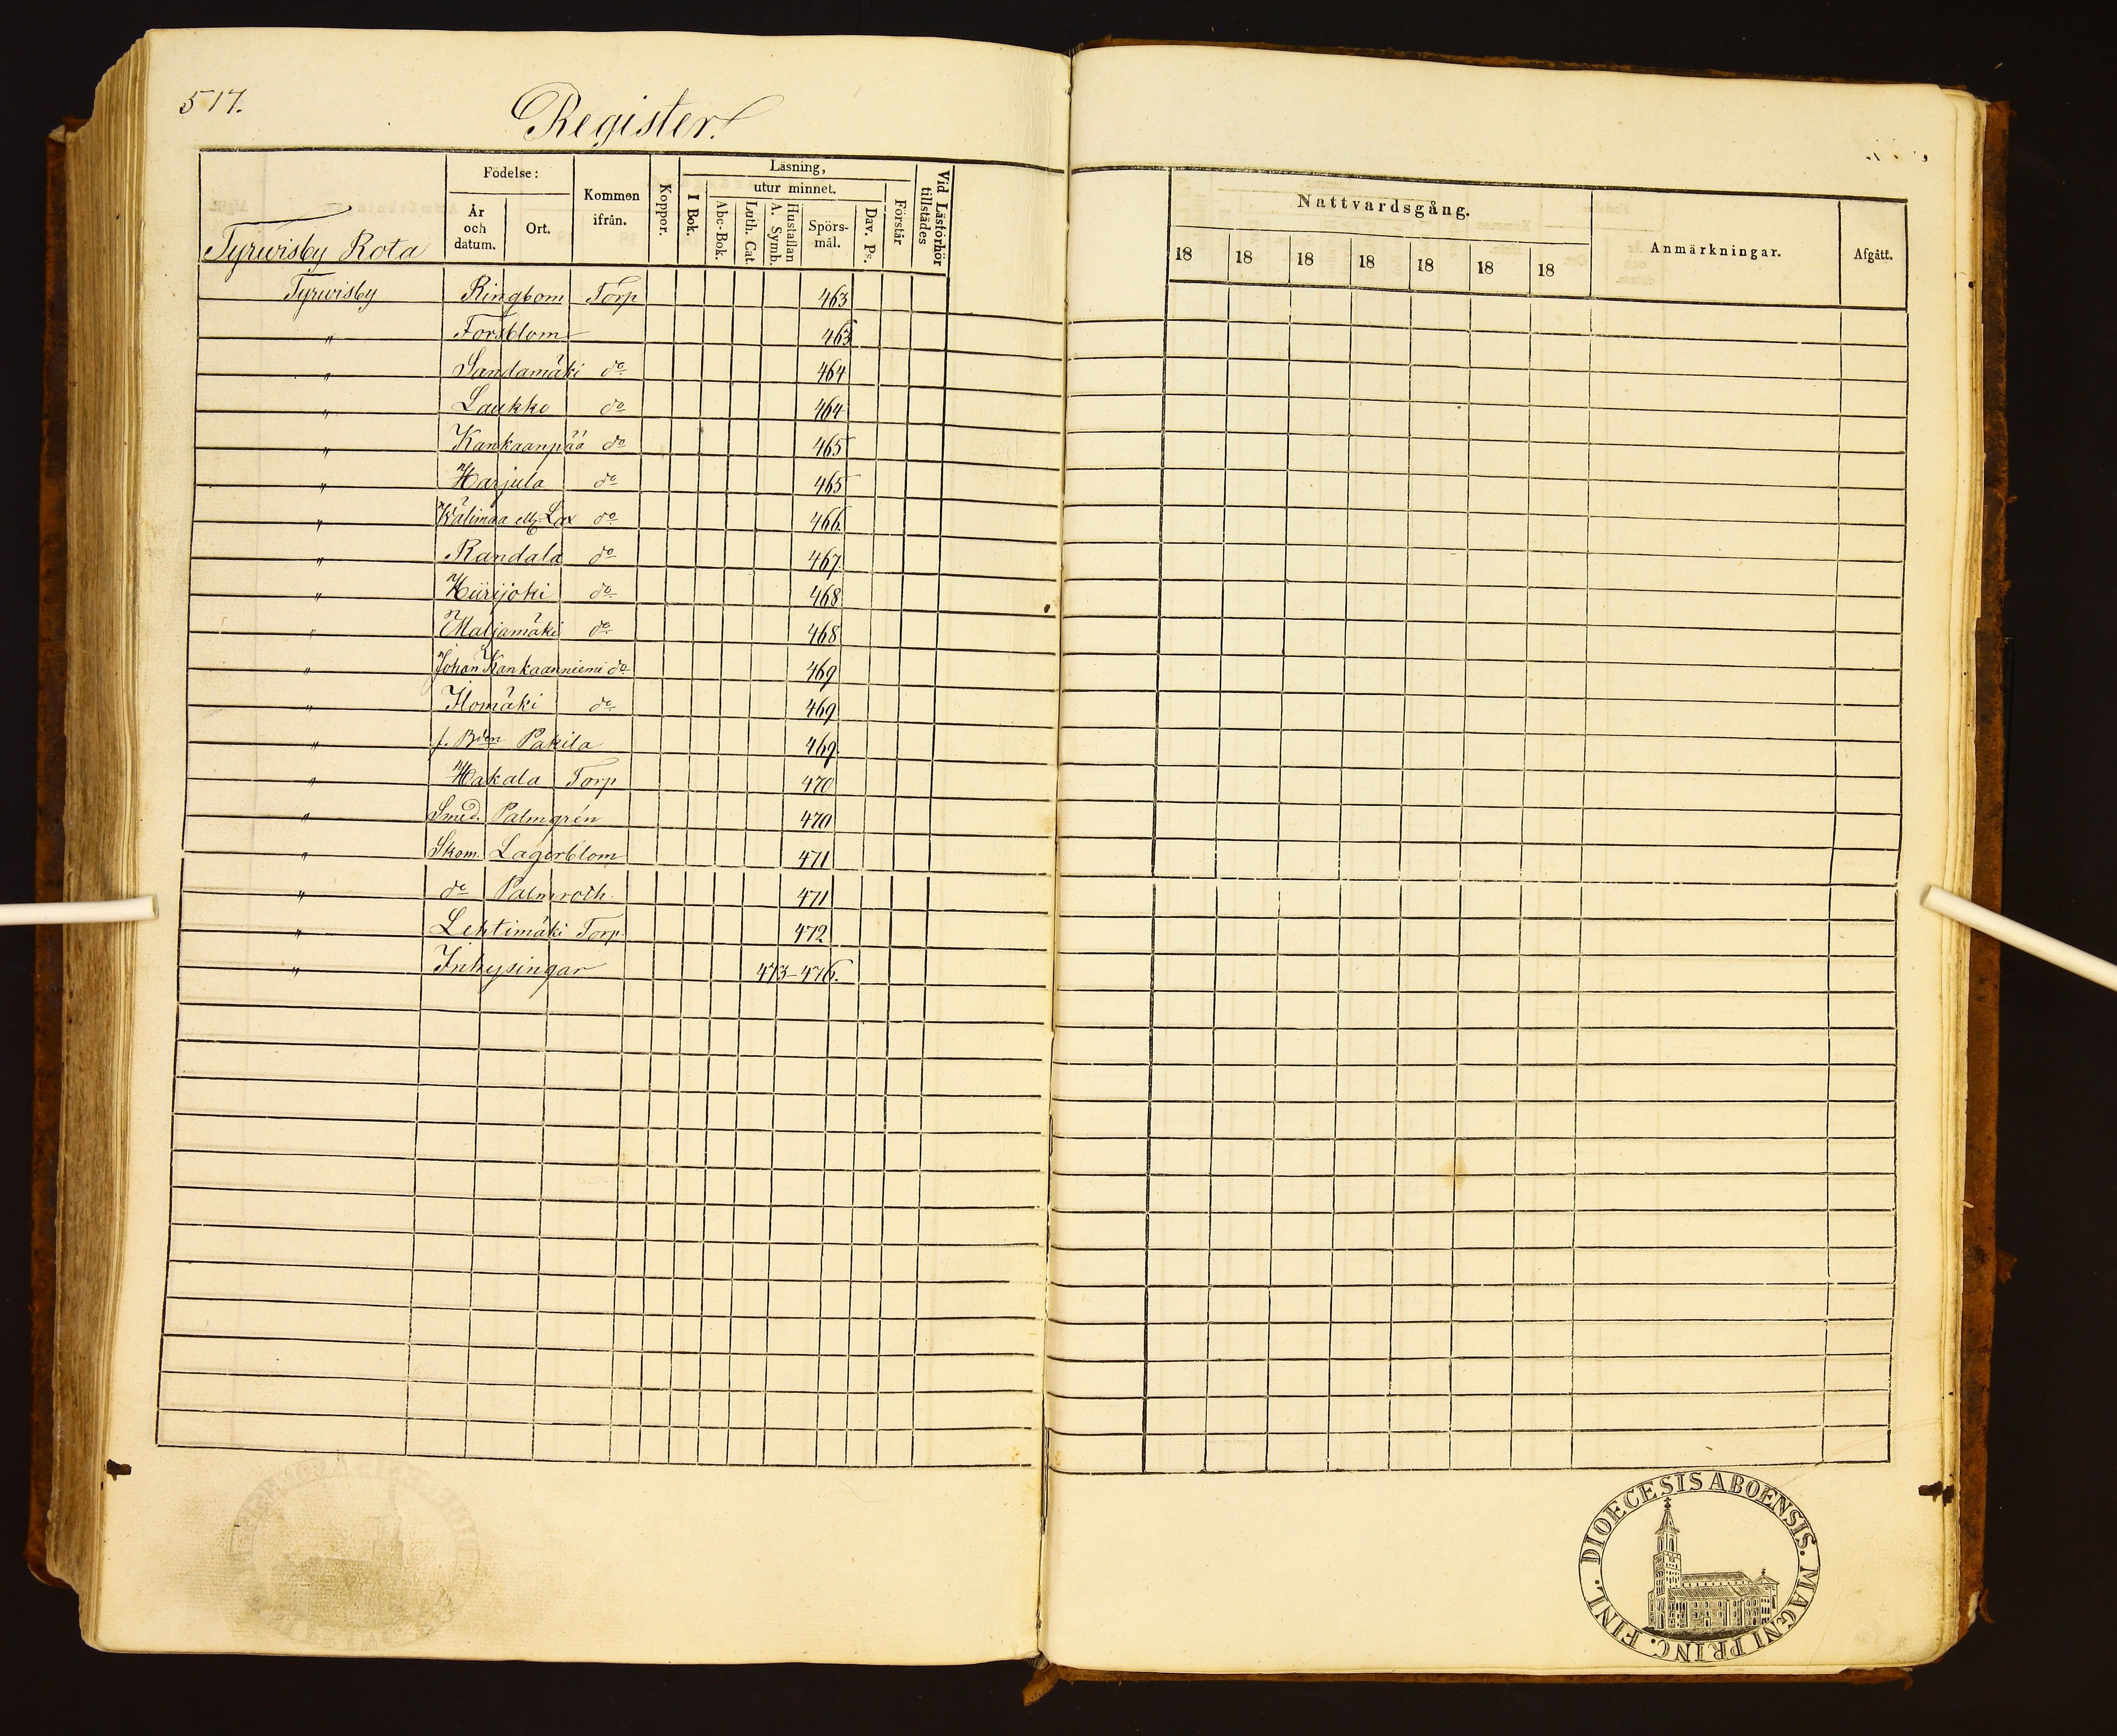 517.
Register.
Tyrwisby Rota
Födelse:
År och datum.
Ort.
Kommen ifrån.
Koppor.
Läsning,
utur minnet.
I Bok.
Abc-Bok.
Luth. Cat.
Hustaflan A. Symb.
Spörs-mål.
Dav. Ps.
Förstår
Vid Läsförhör tillstädes
Nattvardsgång.
18 18 18 18 18 18 18
Anmärkningar.
Afgått.
Tyrwisby Ringbom Torp 463
" Forsblom 463
" Sandamäki do 464
" Laukko do 464
" Kankaanpää do 465
" Harjula do 465
" Wälimaa ell. Lax do 466.
" Randala do 467
" Hiirijoki do 468
" Maljamäki do 468
" Johan Kankaanniemi do 469
" Ilomäki do 469
" f. Bden Pakila 469.
" Hakala Torp 470
" Smed. Palmgrén 470
" Skom. Lagerblom 471
" do Palmroth. 471
" Lehtimäki Torp. 472
" Inhysingar 473-476.
DIOECESIS ABOENSIS. MAGNI PRINC. FINL.